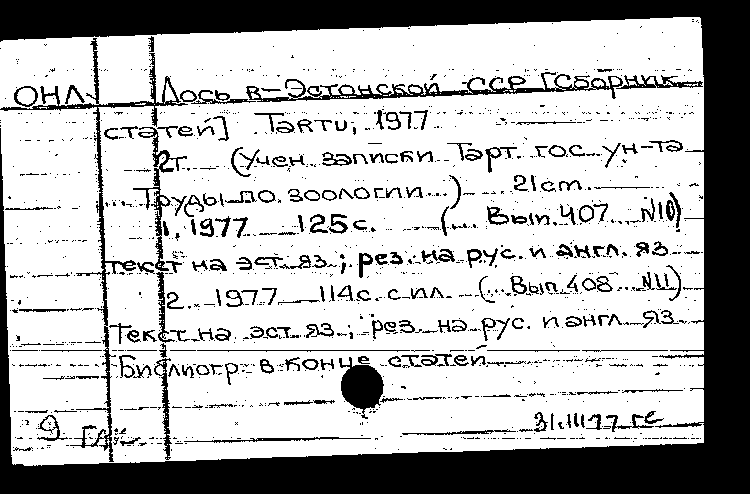 ОНЛ Лось в Эстонской ССР [Сборник
статей] Tartu, 1977
2т. (Учен. записки Тарт. гос. ун-та
... Труды по зоологии...) 21cm
1. 1977 125с. (... Вып. 407 ... N10)
текст на эст. яз.; рез. на рус. и англ. яз
2. 1977 114с. с ил. (... Вып. 408 ... N11)
Текст на эст. яз.; рез. на рус. и англ. яз
Библиогр. в конце статей
9 31.III77 гс